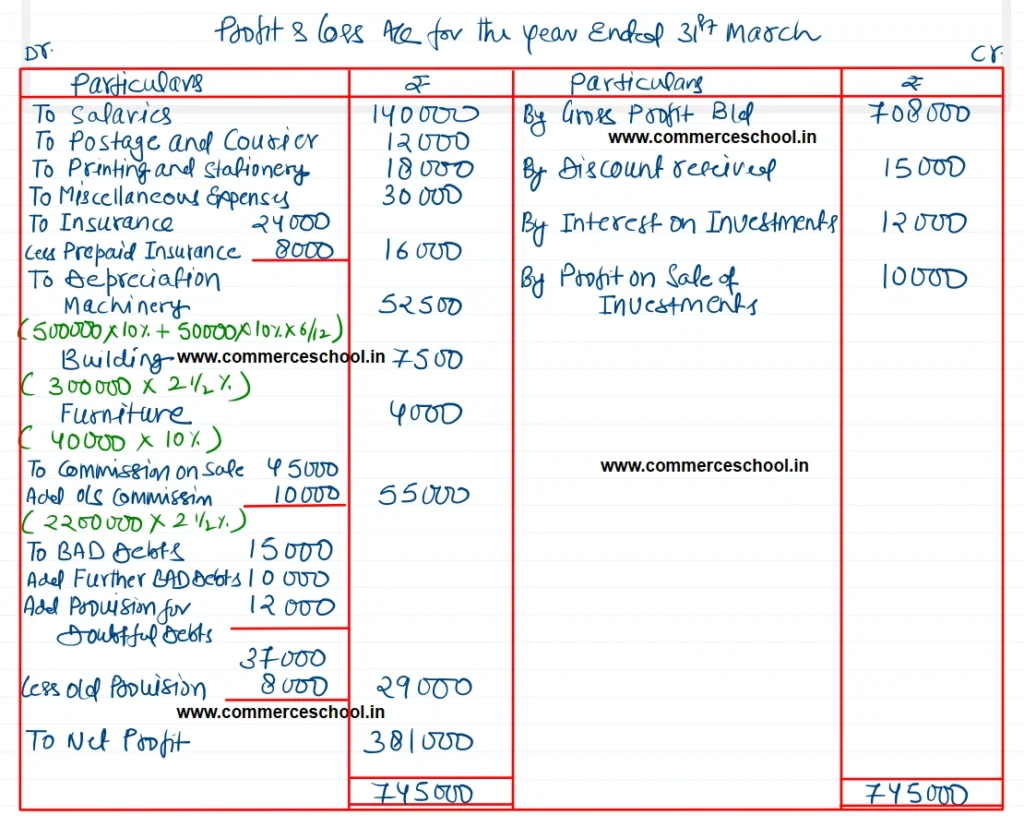 Profit & Loss A/c for the year Ended 31st March
Dr. Cr.
Particulars ₹ Particulars ₹
To Salaries 140000 By Gross Profit B/d 708000
www.commerceschool.in
To Postage and Courier 12000
To Printing and Stationery 18000 By Discount received 15000
To Miscellaneous Expenses 30000
To Insurance 24000 By Interest on Investments 12000
Less Prepaid Insurance 8000 16000
To Depreciation By Profit on Sale of 10000
Machinery 52500 Investments
(500000 x 10% + 50000 x 10% x 6/12)
Building www.commerceschool.in 7500
(300000 x 2 1/2 %)
Furniture 4000
(40000 x 10%)
To Commission on Sale 45000 www.commerceschool.in
Add O/S Commission 10000 55000
(2200000 x 2 1/2 %)
To BAD Debts 15000
Add Further BAD Debts 10000
Add Provision for 12000
Doubtful Debts
37000
Less Old Provision 8000 29000
www.commerceschool.in
To Net Profit 381000
745000 745000